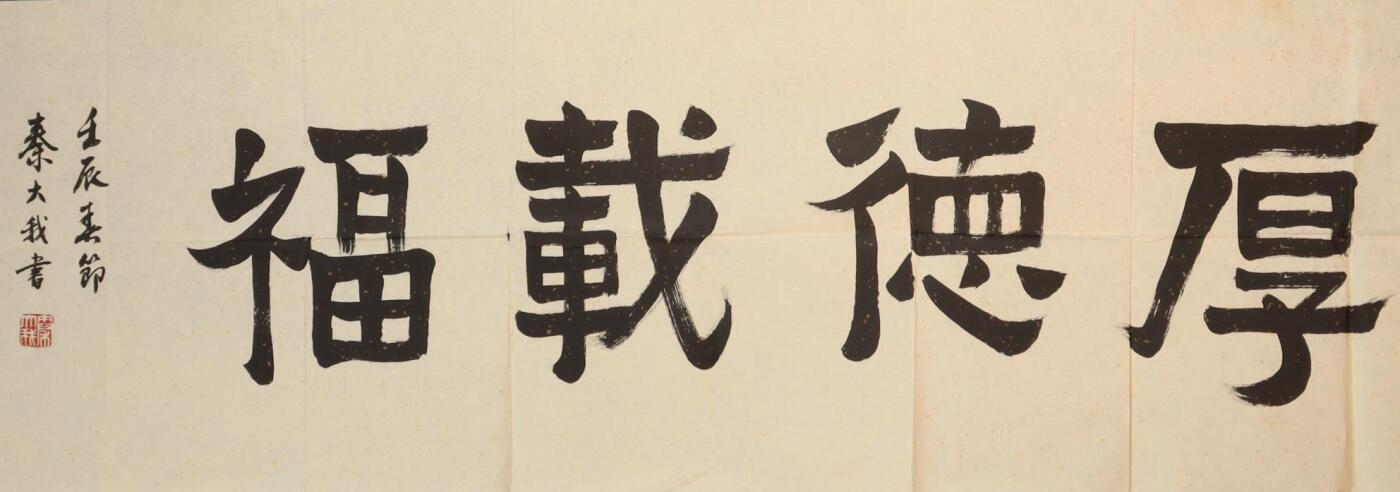 厚德載福
壬辰春節
秦大我書